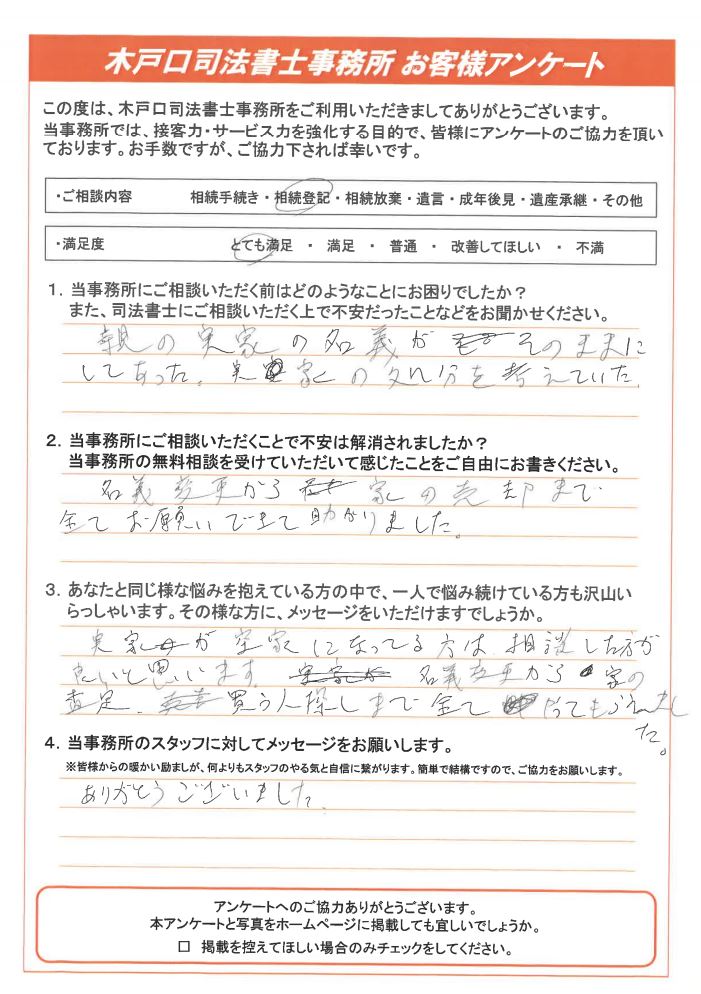 木戸口司法書士事務所 お客様アンケート
この度は、木戸口司法書士事務所をご利用いただきましてありがとうございます。
当事務所では、接客力・サービス力を強化する目的で、皆様にアンケートのご協力を頂い
ております。お手数ですが、ご協力下されば幸いです。
・ご相談内容 相続手続き・相続登記・相続放棄・遺言・成年後見・遺産承継・その他
・満足度 とても満足 ・ 満足 ・ 普通 ・ 改善してほしい ・ 不満
1. 当事務所にご相談いただく前はどのようなことにお困りでしたか？
また、司法書士にご相談いただく上で不安だったことなどをお聞かせください。
親の実家の名義がそのままに
してあった。実家の処分を考えていた。
2. 当事務所にご相談いただくことで不安は解消されましたか？
当事務所の無料相談を受けていただいて感じたことをご自由にお書きください。
名義変更から家の売却まで
全てお願いできて助かりました。
3. あなたと同じ様な悩みを抱えている方の中で、一人で悩み続けている方も沢山い
らっしゃいます。その様な方に、メッセージをいただけますでしょうか。
実家が空家になってる方は、相談した方が
良いと思います。名義変更から家の
査定、買う人探しまで全てやってもらえまし
た。
4. 当事務所のスタッフに対してメッセージをお願いします。
※皆様からの暖かい励ましが、何よりもスタッフのやる気と自信に繋がります。簡単で結構ですので、ご協力をお願いします。
ありがとうございました。
アンケートへのご協力ありがとうございます。
本アンケートと写真をホームページに掲載しても宜しいでしょうか。
□ 掲載を控えてほしい場合のみチェックをしてください。